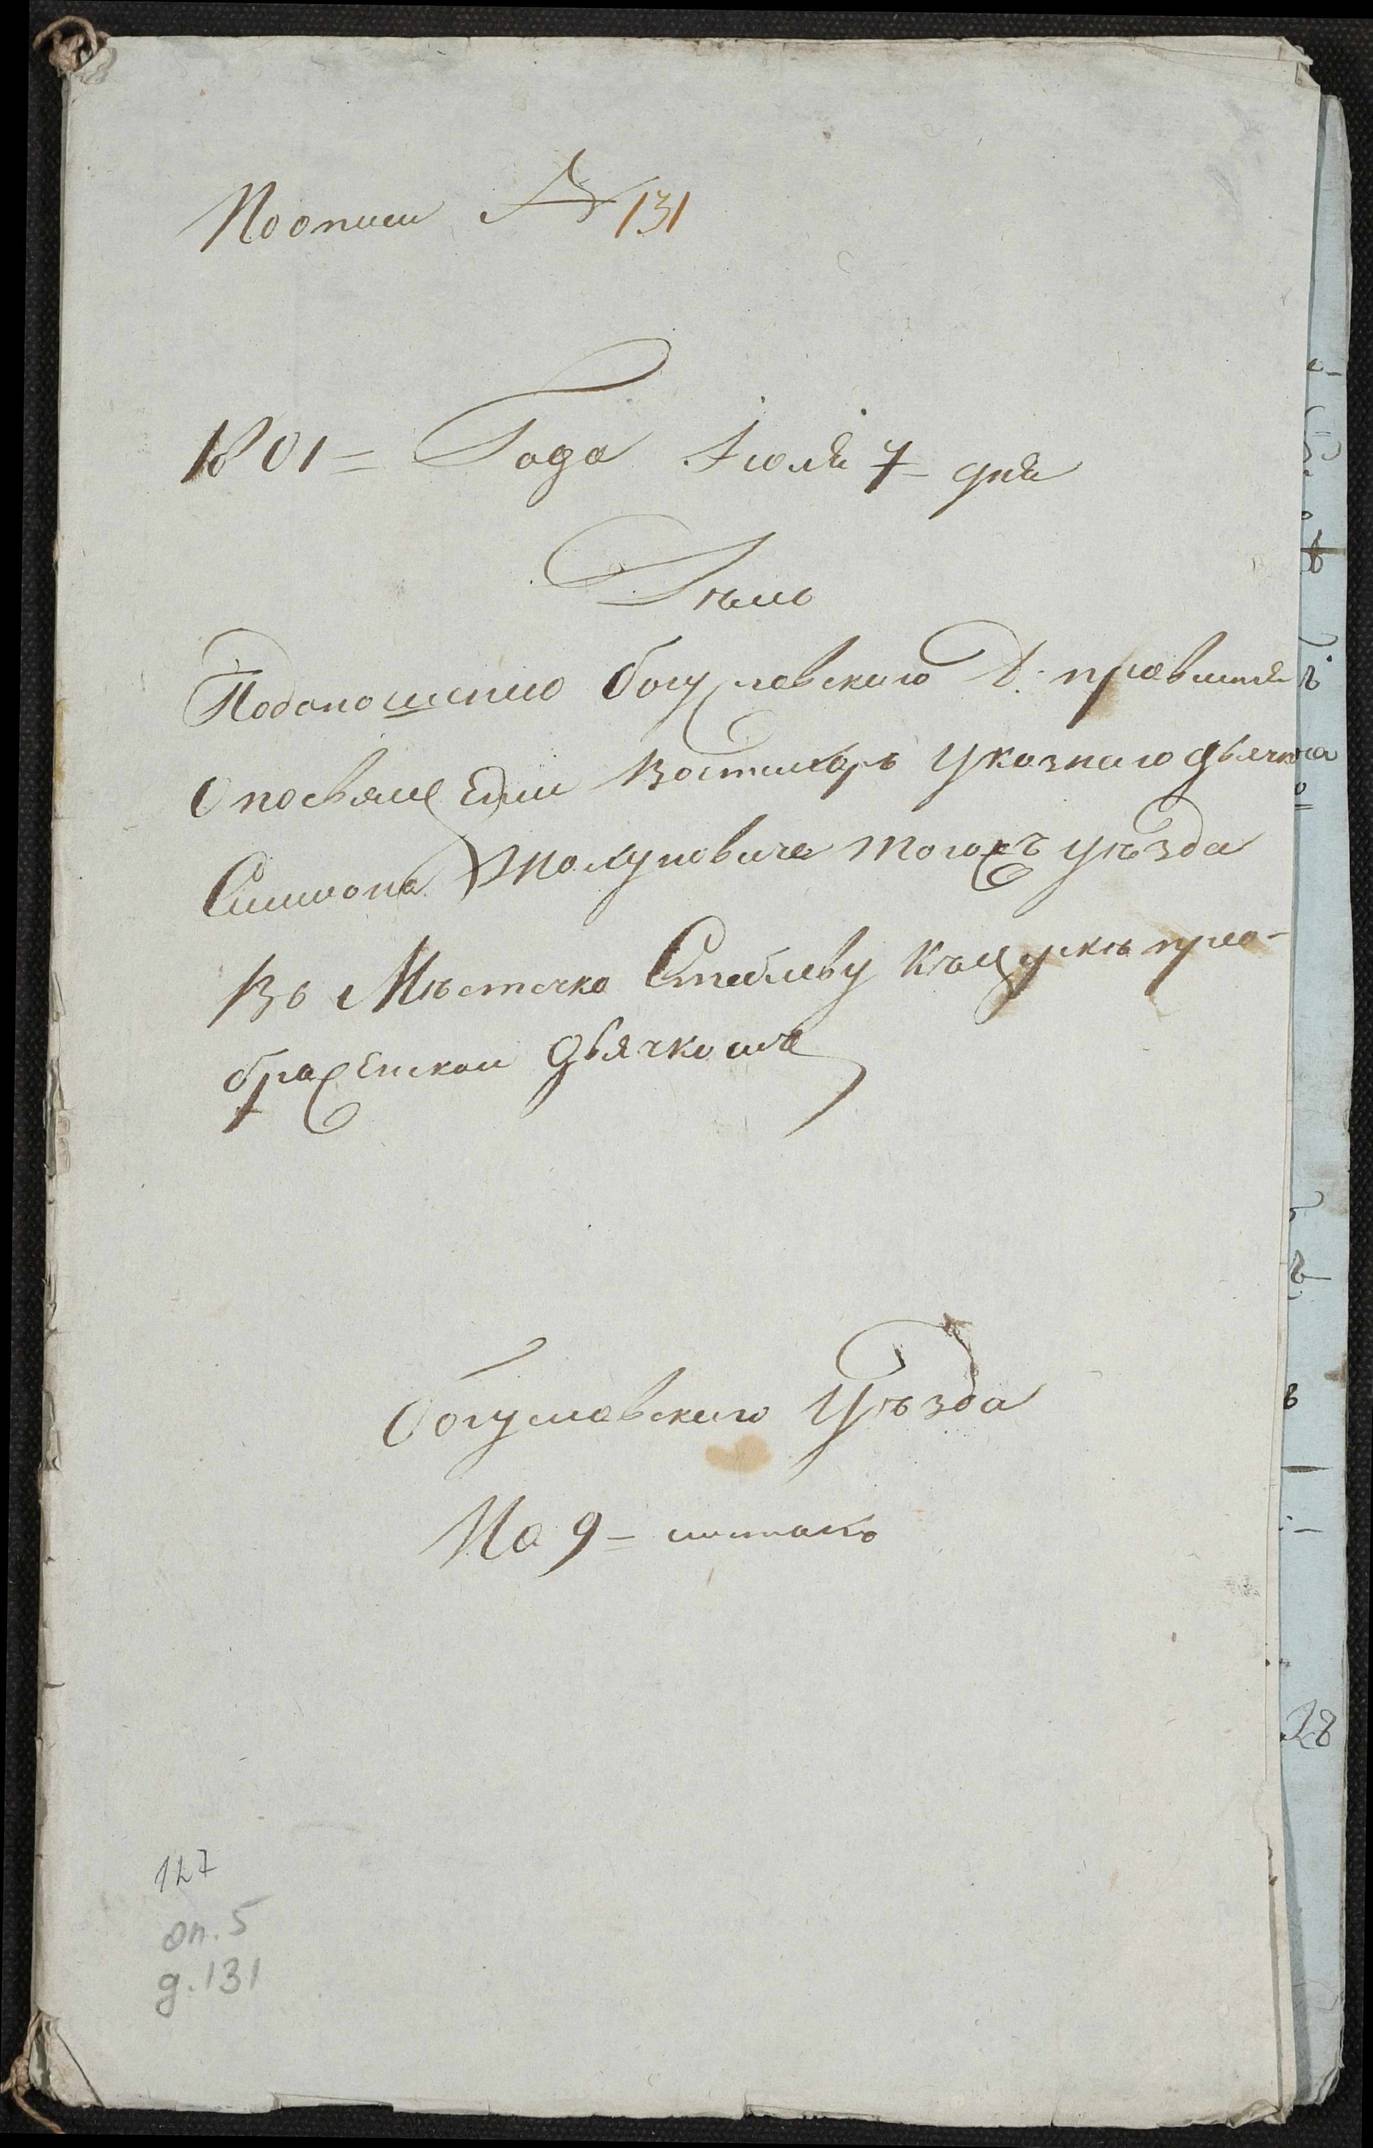 По описи № 131
1801= Года Іюля 7= дня
Дѣло
Подоношению богуславского Д: правления
О посвящении Востихарь указнаго дьячка
Симеона тогожъ уѣзда
Въ Мѣстечко Стеблеву Къ церквѣ прео-
браженской дьячкомъ
богуславского Уѣзда
На 9= листахъ
127
оп. 5
д. 131
28